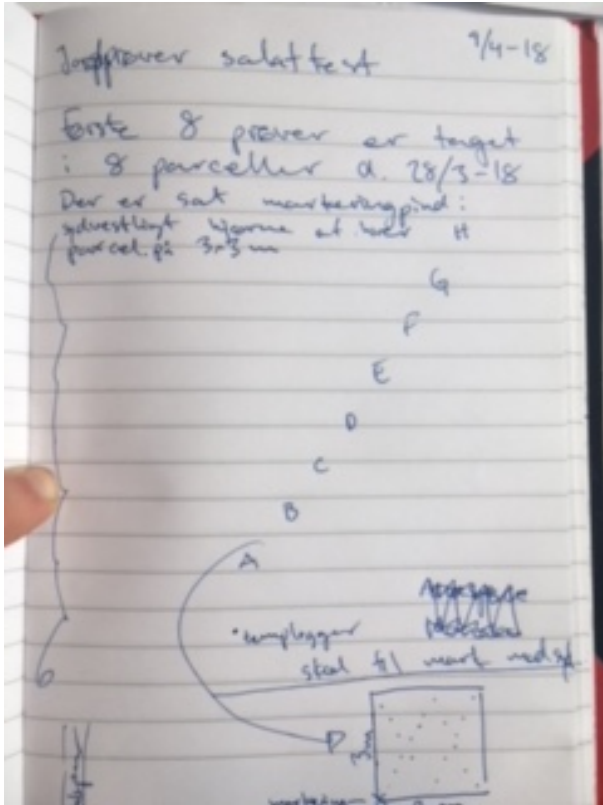 Jordprøver salattest 9/4-18
Første 8 prøver er taget
i 8 parceller d. 28/3-18
Der er sat markeringspind i
sydvestligt hjørne af hver H
parcel på 3x3 m
G
F
E
D
C
B
A
templogger
skal til mart med
3m